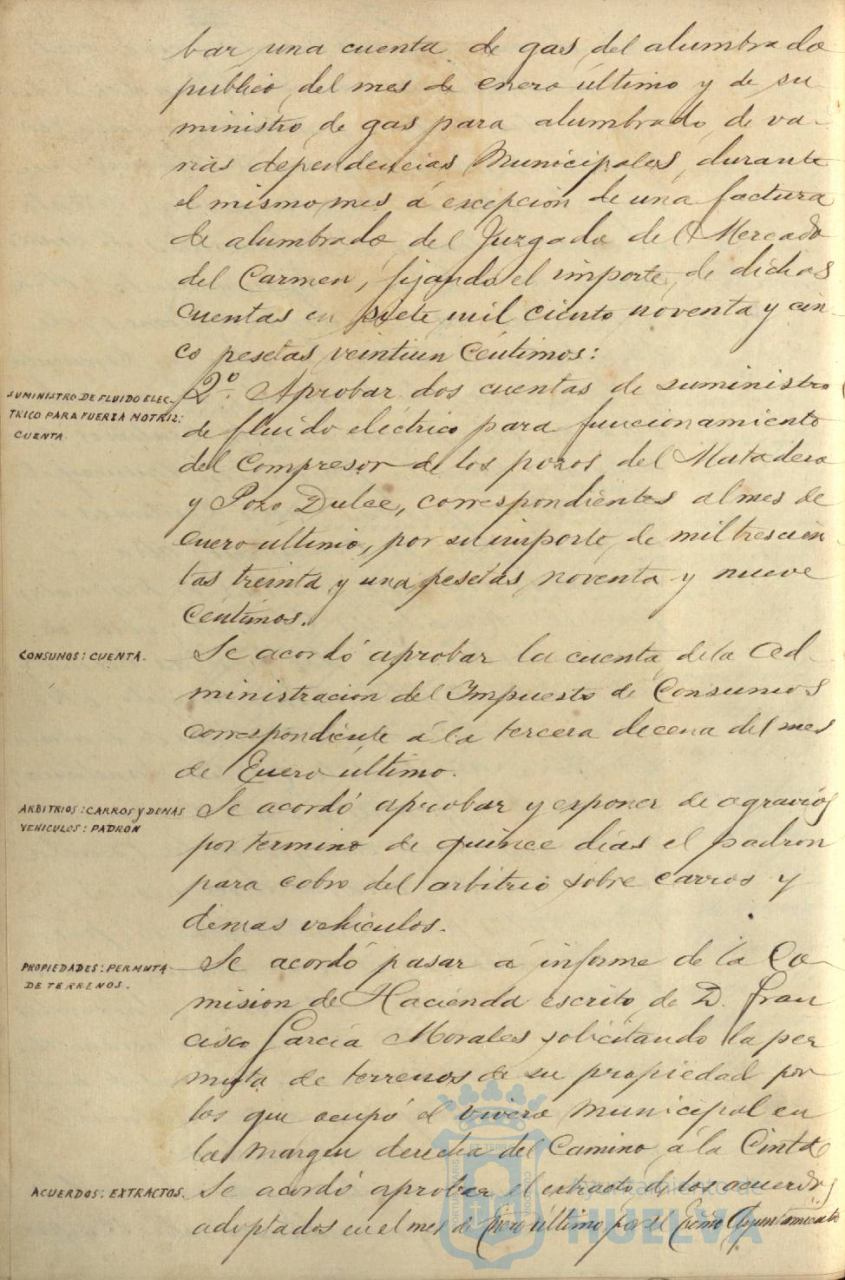 bar una cuenta de gas del alumbrado
publico del mes de enero último y de su
ministro de gas para alumbrado de va-
rias dependencias Municipales, durante
el mismo mes á excepción de una factura
de alumbrado del Juzgado del Mercado
del Carmen, fijando el importe de dichas
cuentas en siete mil ciento noventa y cin-
co pesetas veintiun Céntimos:
SUMINISTRO DE FLUIDO ELEC-
TRICO PARA FUERZA MOTRIZ:
CUENTA
2º. Aprobar dos cuentas de suministro
de fluido eléctrico para funcionamiento
del Compresor de los pozos del Matadero
y Pozo Dulce, correspondientes al mes de
enero último, por su importe de mil trescien
tas treinta y una pesetas, noventa y nueve
Céntimos.
CONSUMOS: CUENTA.
Se acordó aprobar la cuenta de la Ad-
ministracion del Impuesto de Consumos
correspondiente á la tercera decena del mes
de Enero último.
ARBITRIOS: CARROS Y DEMAS
VEHICULOS: PADRON
Se acordó aprobar y exponer de agravios
por termino de quince días el padron
para cobro del arbitrio sobre carros y
demas vehiculos.
PROPIEDADES: PERMUTA
DE TERRENOS.
Se acordó pasar á informe de la Co-
mision de Hacienda escrito de D. Fran
cisco García Morales solicitando la per
muta de terrenos de su propiedad por
los que ocupó el vivero municipal en
la margen derecha del Camino á la Cinta
ACUERDOS: EXTRACTOS.
Se acordó aprobar el extracto de los acuerdos
adoptados en el mes de Enero último por el Excmo Ayuntamiento
Ayuntamiento de
HUELVA